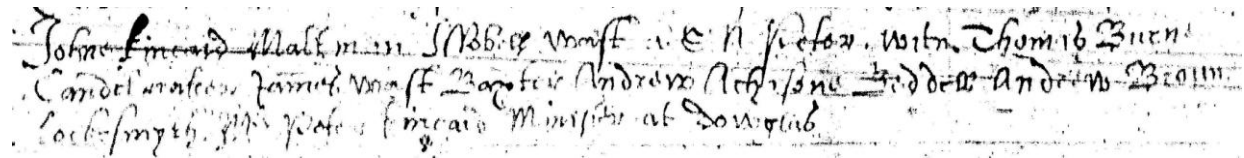 Johne Kincaid Maltman Issobell Wast a S N Peter. witn. Thomas Burne
Candelmaker James Wast Baxter Andrew Achisone Beddell Andrew Broun
Locksmyth. Mr Peter Kincaid Minister at Dowglas